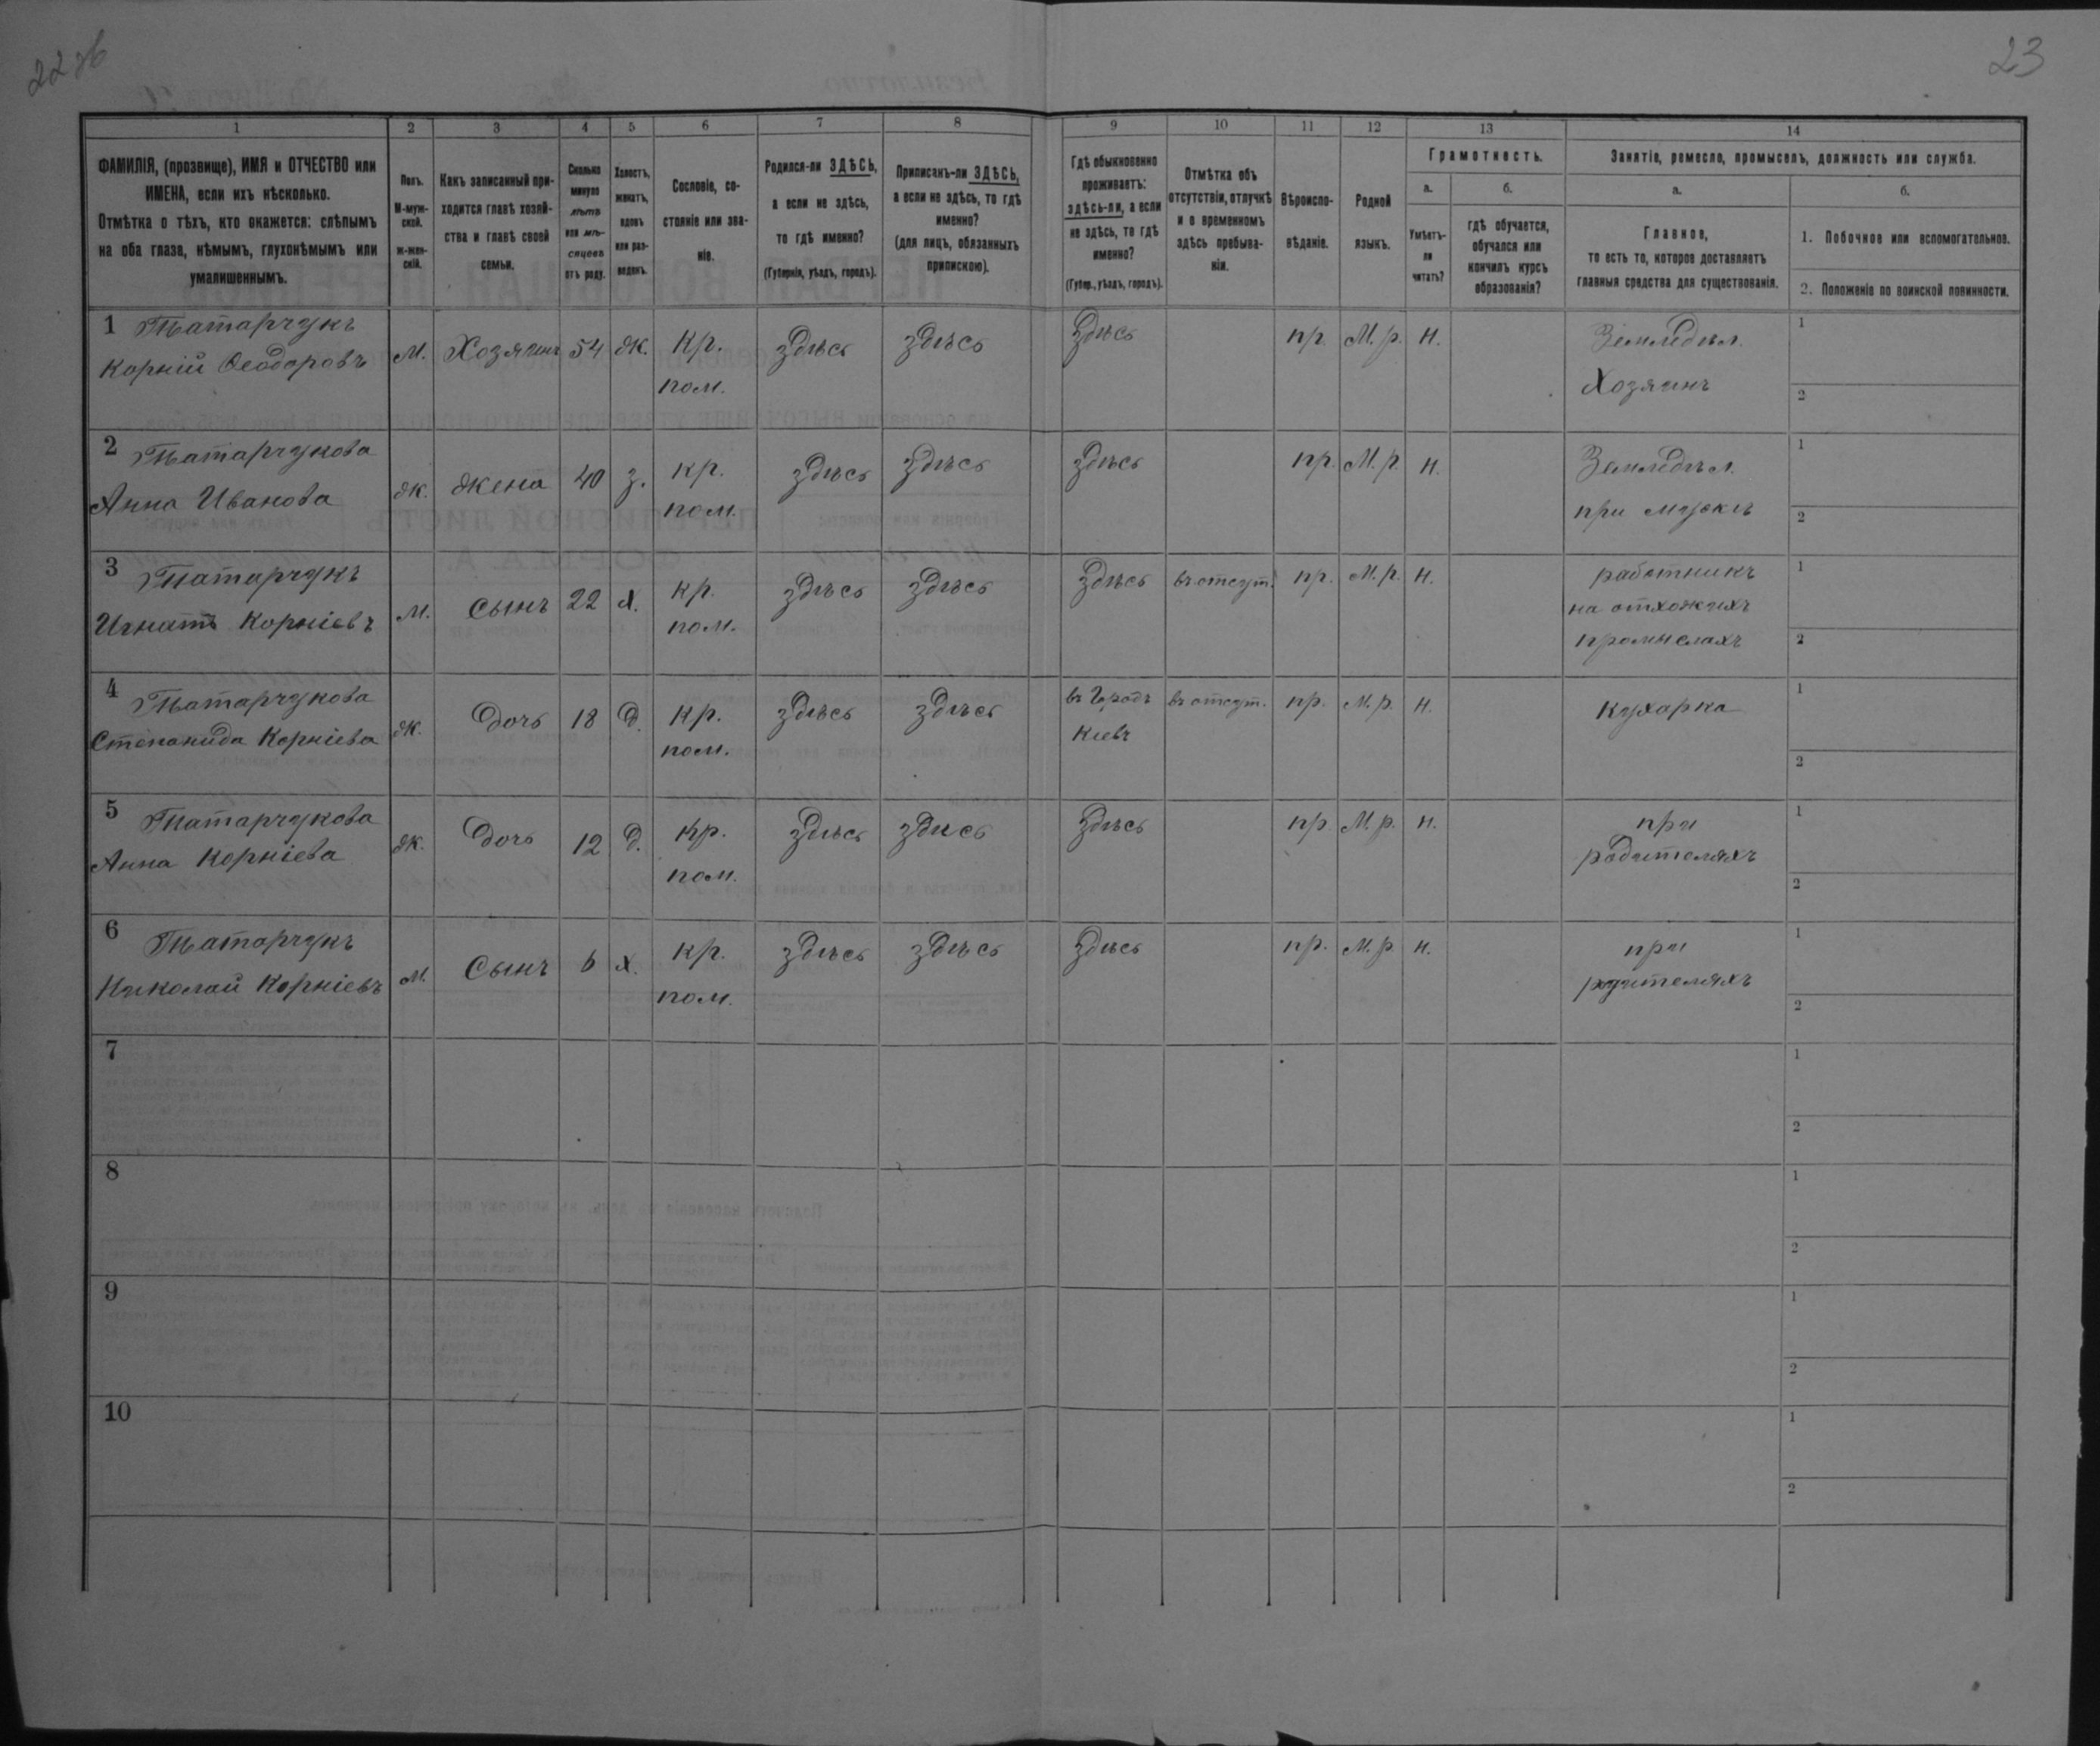 22 об
23
1 2 3 4 5 6 7 8 9 10 11 12 13 14
ФАМИЛІЯ, (прозвище), ИМЯ и ОТЧЕСТВО или
ИМЕНА, если ихъ нѣсколько.
Отмѣтка о тѣхъ, кто окажется: слѣпымъ
на оба глаза, нѣмымъ, глухонѣмымъ или
умалишеннымъ.
Полъ.
М-муж-
ской.
ж-жен-
скій.
Какъ записанный при-
ходится главѣ хозяй-
ства и главѣ своей
семьи.
Сколько
минуло
лѣтъ
или мѣ-
сяцевъ
отъ роду.
Холостъ,
женатъ,
вдовъ
или раз-
веденъ.
Сословіе, со-
стояніе или зва-
ніе.
Родился-ли ЗДѢСЬ,
а если не здѣсь,
то гдѣ именно?
(Губернія, уѣздъ, городъ).
Приписанъ-ли ЗДѢСЬ,
а если не здѣсь, то гдѣ
именно?
(для лицъ, обязанныхъ
припискою).
Гдѣ обыкновенно
проживаетъ:
здѣсь-ли, а если
не здѣсь, то гдѣ
именно?
(Губер., уѣздъ, городъ).
Отмѣтка объ
отсутствіи, отлучкѣ
и о временномъ
здѣсь пребыва-
ніи.
Вѣроиспо-
вѣданіе.
Родной
языкъ.
Грамотность.
а.
Умѣетъ-
ли
читать?
б.
гдѣ обучается,
обучался или
кончилъ курсъ
образованія?
Занятіе, ремесло, промыселъ, должность или служба.
а.
Главное,
то есть то, которое доставляетъ
главныя средства для существованія.
б.
1. Побочное или вспомогательное.
2. Положеніе по воинской повинности.
1 Татарчукъ
Корній Ѳеодоровъ
м. Хозяинъ 54 ж. Кр.
пом.
здѣсь здѣсь здѣсь пр. М. р. н. Земледѣл.
Хозяинъ
1
2
2 Татарчукова
Анна Иванова
ж. жена 40 з. кр.
пом.
здѣсь здѣсь здѣсь пр. М. р. н. Земледѣл.
при мужѣ
1
2
3 Татарчукъ
Игнатъ Корніевъ
м. сынъ 22 х. кр.
пом.
здѣсь здѣсь здѣсь въ отсут. пр. М. р. н. работникъ
на отхожихъ
промыслахъ
1
2
4 Татарчукова
Степанида Корніева
ж. дочь 18 д. кр.
пом.
здѣсь здѣсь въ Городѣ
Кіевѣ
въ отсут. пр. М. р. н. кухарка
1
2
5 Татарчукова
Анна Корніева
ж. дочь 12 д. кр.
пом.
здѣсь здѣсь здѣсь пр. М. р. н. при
родителяхъ
1
2
6 Татарчукъ
Николай Корніевъ
м. сынъ 6 х. кр.
пом.
здѣсь здѣсь здѣсь пр. М. р. н. при
родителяхъ
1
2
7
1
2
8
1
2
9
1
2
10
1
2